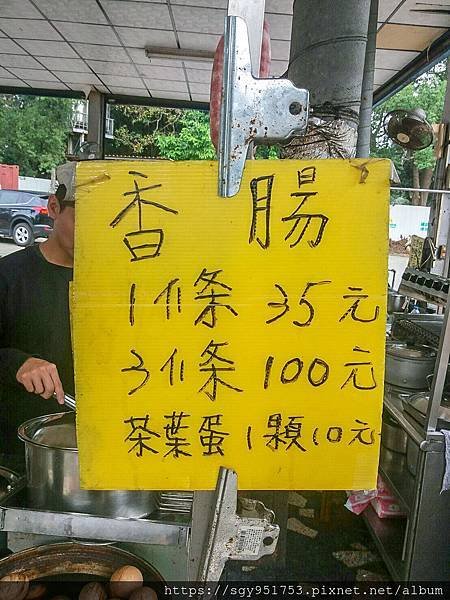 香腸
1條 35元
3條 100元
茶葉蛋1顆10元
https://sgy951753.pixnet.net/blog